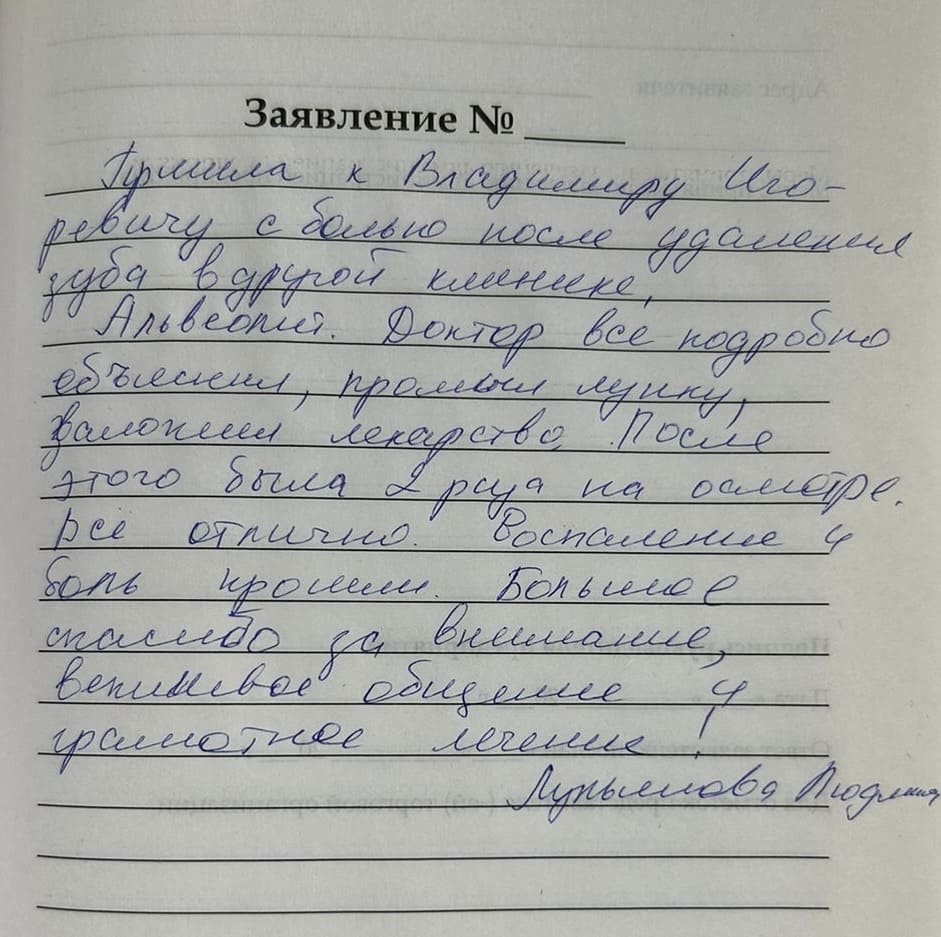 Заявление № ____
Пришла к Владимиру Иго-
ревичу с болью после удаления
зуба в другой клинике,
Альвеолит. Доктор все подробно
объяснил, промыл лунку,
заложил лекарство. После
этого была 2 раза на осмотре.
Все отлично. Воспаление и
боль прошли. Большое
спасибо за внимание,
вежливое общение и
грамотное лечение!
Людмила